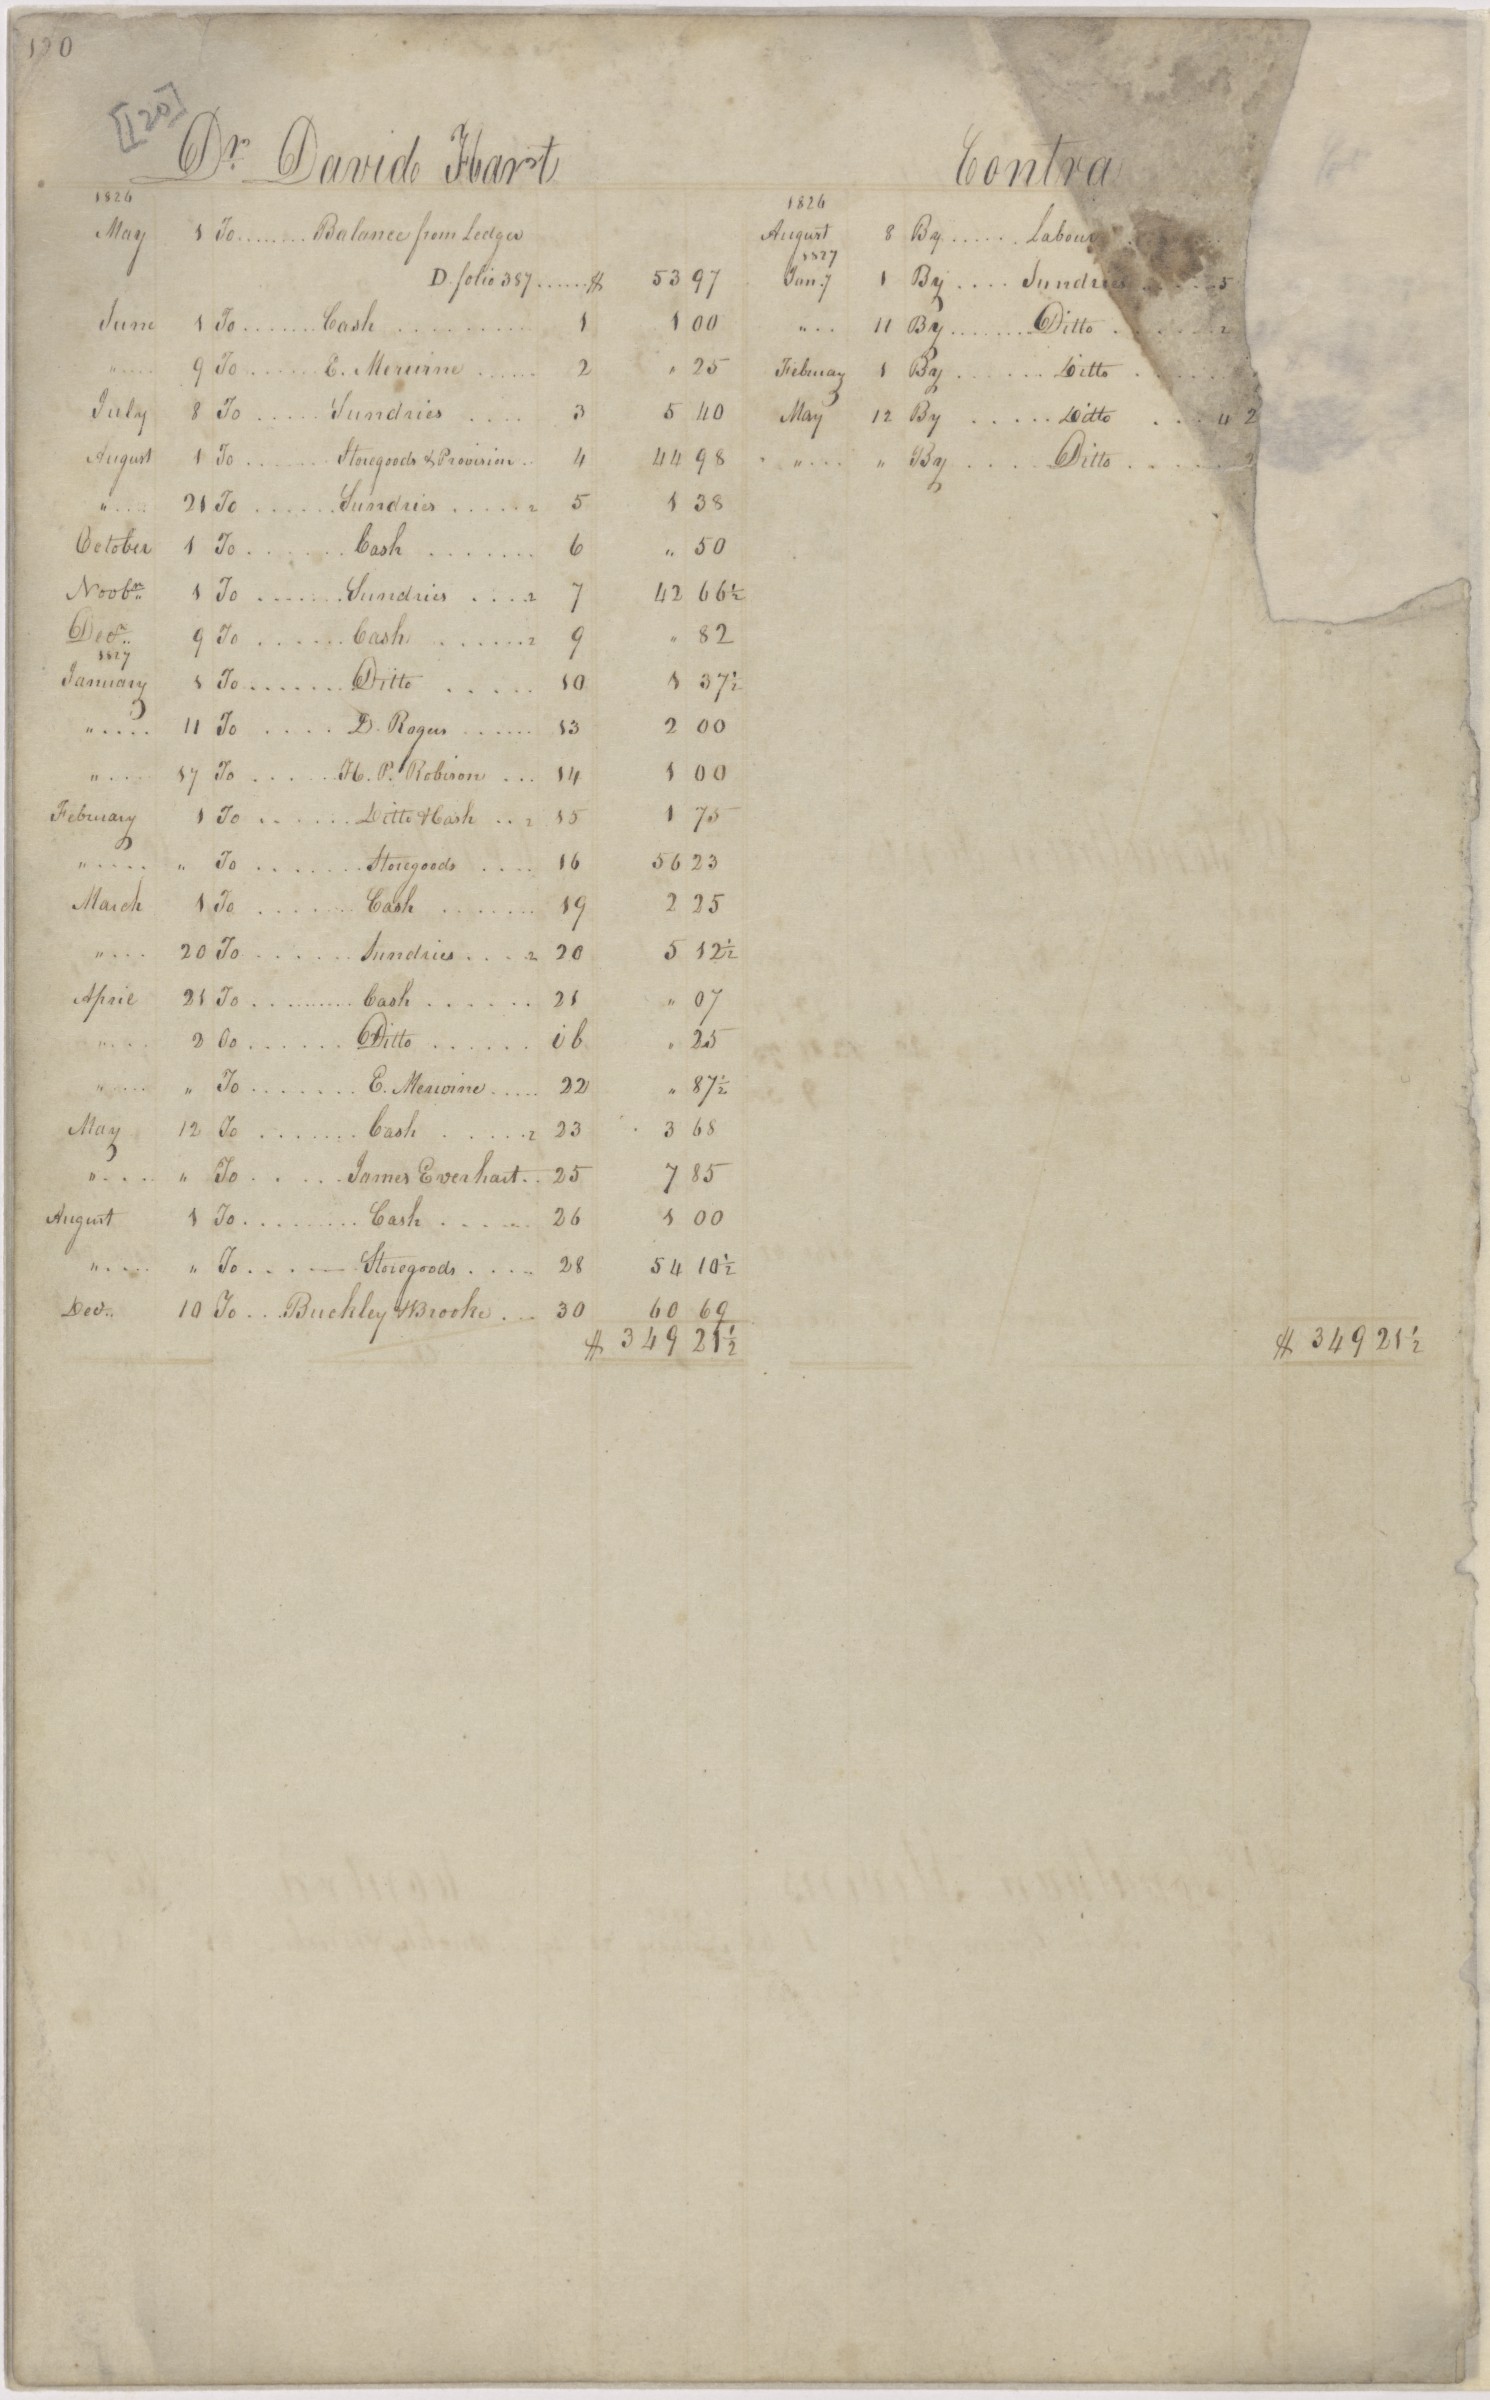 120
[120]
Dr. David Hart
1826
May 1 To........ Balance from Ledger
D. folio 387......$ 53 97
June 1 To....... Cash ......... 1 1 00
".... 9 To...... E. Merwine ...... 2 " 25
July 8 To ..... Sundries .... 3 5 40
August 1 To ...... Storegoods & Provision.. 4 44 98
".... 21 To ...... Sundries .....2 5 1 38
October 1 To...... Cash ....... 6 " 50
Novbr.. 1 To ...... Sundries ....2 7 42 66½
Decr.. 9 To ...... Cash ......2 9 " 82
1827
January 1 To....... Ditto ..... 10 1 37½
".... 11 To .... D. Roger ...... 13 2 00
".... 17 To ..... H. P. Robison ... 14 1 00
February 1 To ...... Ditto & Cash ..2 15 1 75
"..... " To ....... Storegoods .... 16 56 23
March 1 To ...... Cash ....... 19 2 25
".... 20 To ...... Sundries ....2 20 5 12½
April 21 To ......... Cash ...... 21 " 07
".... 2 To ...... Ditto ...... ib " 25
".... " To ....... E. Merwine ..... 22 " 87½
May 12 To ....... Cash .....2 23 3 68
".... " To ..... James Everhart.. 25 7 85
August 1 To......... Cash ..... 26 1 00
".... " To .... Storegoods .... 28 54 10½
Dec.. 10 To .. Buckley & Brooke ... 30 60 69
$ 349 21½
Contra
1826
August 8 By ...... Labour
1827
Jan.y 1 By .... Sundries ..... 5
"... 11 By ....... Ditto ...... 2
February 1 By ...... Ditto .....
May 12 By ..... Ditto ... 4 2
".... " By ..... Ditto .....
$ 349 21½